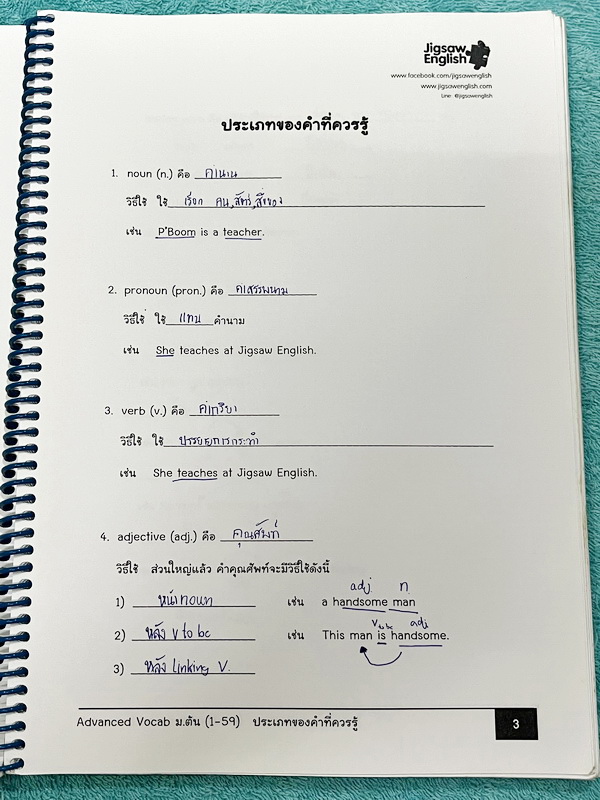 Jigsaw
English
www.facebook.com/jigsawenglish
www.jigsawenglish.com
Line: @jigsawenglish
ประเภทของคำที่ควรรู้
1. noun (n.) คือ คำนาม
วิธีใช้ ใช้ เรียก คน, สัตว์, สิ่งของ
เช่น P'Boom is a teacher.
2. pronoun (pron.) คือ คำสรรพนาม
วิธีใช้ ใช้ แทน คำนาม
เช่น She teaches at Jigsaw English.
3. verb (v.) คือ คำกริยา
วิธีใช้ ใช้ บรรยายการกระทำ
เช่น She teaches at Jigsaw English.
4. adjective (adj.) คือ คุณศัพท์
วิธีใช้ ส่วนใหญ่แล้ว คำคุณศัพท์จะมีวิธีใช้ดังนี้
adj. n
1) หน้า noun เช่น a handsome man
v to be adj
2) หลัง v to be เช่น This man is handsome.
3) หลัง linking V.
Advanced Vocab ม.ต้น (1-59) ประเภทของคำที่ควรรู้ 3